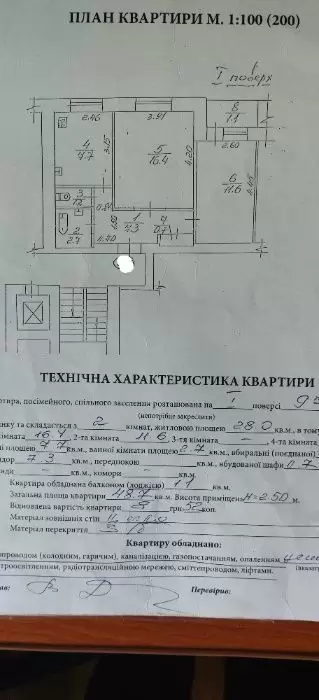 ПЛАН КВАРТИРИ М. 1:100 (200)
I поверх
2.46
3.91
8
1.1
2.60
4
7.7
3.15
5
16.4
4.20
6
11.6
4.45
3
1.2
0.81
2
2.7
1
7.3
7
0.7
4.40
ТЕХНІЧНА ХАРАКТЕРИСТИКА КВАРТИРИ
ртира, посімейного, спільного заселення розташована на I поверсі 9
(непотрібне закреслити)
нку та складається з 2 кімнат, житловою площею 28.0 кв.м, в тому
кімната 16.4, 2-га кімната 11.6, 3-тя кімната — , 4-та кімната
ні площею 7.7 кв.м, ванної кімнати площею 2.7 кв.м, вбиральні (поєднаної)
идор 7.3 кв.м, передпокою — кв.м, вбудованої шафи 0.7
ади — кв.м, комори — кв.м.
Квартира обладнана балконом (лоджією) 1.1 кв.м
Загальна площа квартири 48.7 кв.м. Висота приміщень H=2.50 м.
Відновлена вартість квартири грн. коп.
Матеріал зовнішніх стін
Матеріал перекриття З/б
Квартиру обладнано:
опроводом (холодним, гарячим), каналізацією, газопостачанням, опаленням
троосвітленням, радіотрансляційною мережею, сміттєпроводом, ліфтами.
Перевірив: